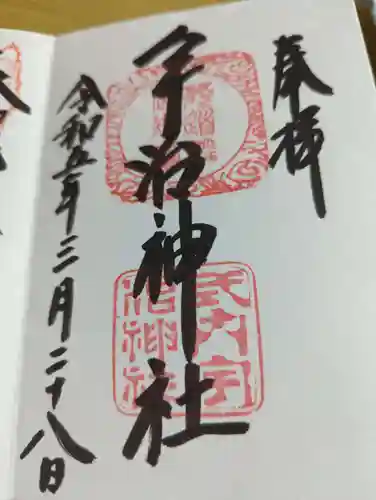 奉拝
宇治神社
式内宇
治神社
令和五年三月二十八日